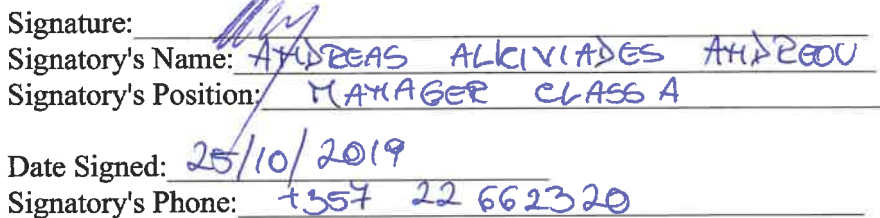 Signature:
Signatory's Name: ANDREAS ALKIVIADES ANDREOU
Signatory's Position: MANAGER CLASS A
Date Signed: 25/10/2019
Signatory's Phone: +357 22 662320